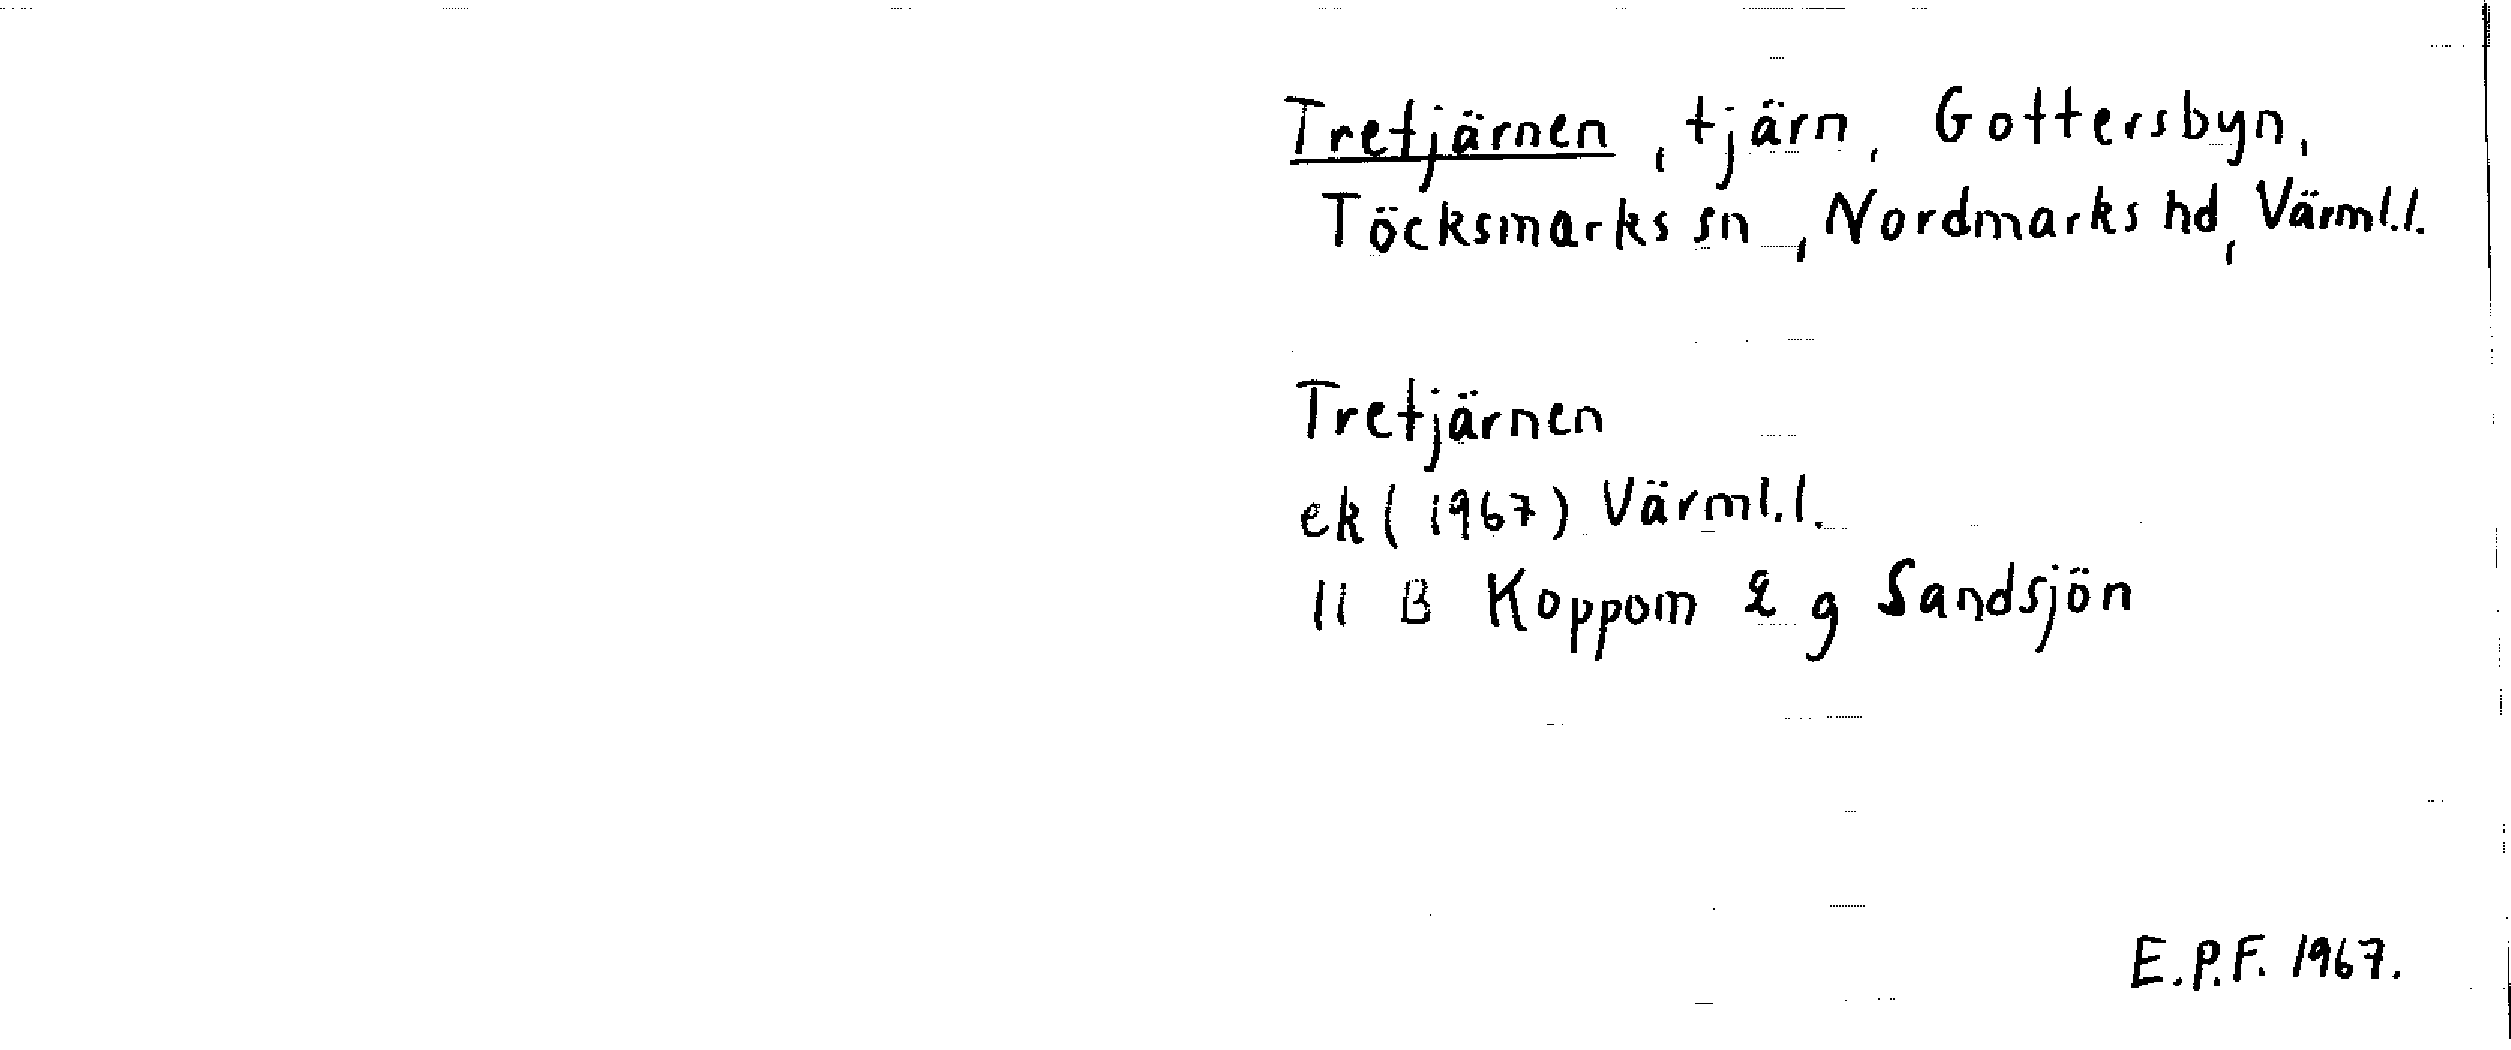 Tretjärnen, tjärn, Gottersbyn,
Töcksmarks sn, Nordmarks hd, Värml.l.
Tretjärnen
ek (1967) Värml.l.
11 B Koppom 2 g Sandsjön
E.P.F. 1967.